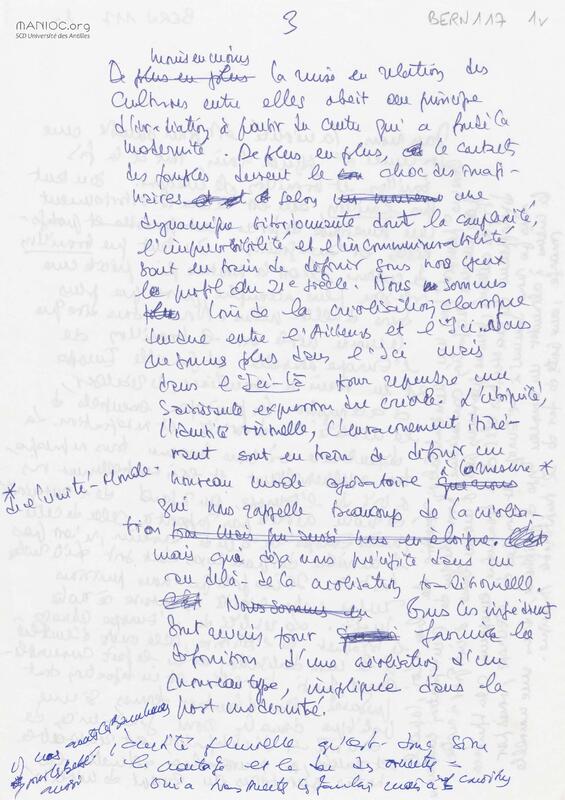 MANIOC.org
SCD Université des Antilles
3
BERN 117 1v
moins en moins
De plus en plus la mise en relation des
cultures entre elles obéit au principe
d'irradiation, à partir du centre qui a fondé la
modernité. De plus en plus, le contact
des peuples devient le choc des imagi-
naires selon une
dynamique dont la complexité,
l'imprévisibilité et l'incommensurabilité
sont en train de définir sous nos yeux
le profil du 21e siècle. Nous sommes
plus loin de la créolisation classique
tendue entre l'Ailleurs et l'Ici. Nous
ne sommes plus dans l'Ici mais
dans l'Ici-Là pour reprendre une
saisissante expression du créole. L'ubiquité,
l'identité virtuelle, l'enracinement itiné-
rant sont en train de définir un
nouveau mode opératoire que nous à la mesure *
* de l'unité-monde.
qui nous rappelle beaucoup de la créolisa-
tion
mais qui déjà nous précipite dans un
au delà de la créolisation traditionnelle.
Nous sommes en Tous ces ingrédients
sont censés fournir la
définition d'une créolisation d'un
nouveau type, impliquée dans la
post modernité.
identité plurielle donc
le partage et le